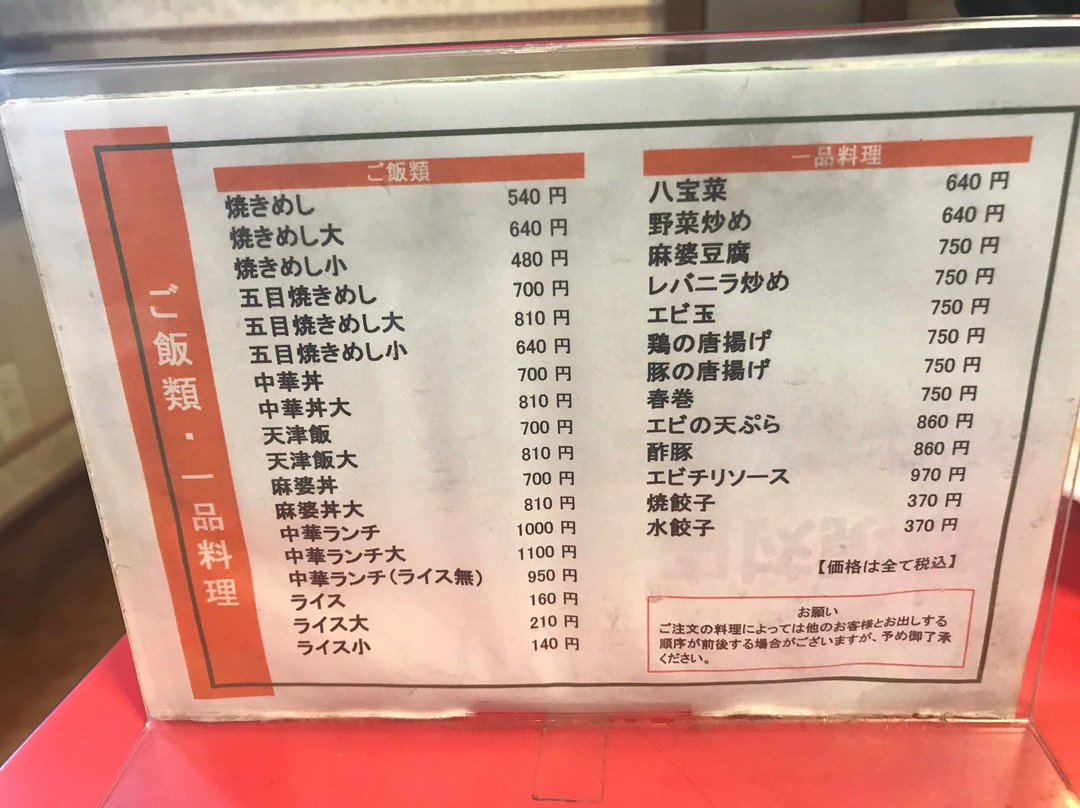 ご飯類・一品料理
ご飯類
焼きめし 540 円
焼きめし大 640 円
焼きめし小 480 円
五目焼きめし 700 円
五目焼きめし大 810 円
五目焼きめし小 640 円
中華丼 700 円
中華丼大 810 円
天津飯 700 円
天津飯大 810 円
麻婆丼 700 円
麻婆丼大 810 円
中華ランチ 1000 円
中華ランチ大 1100 円
中華ランチ(ライス無) 950 円
ライス 160 円
ライス大 210 円
ライス小 140 円
一品料理
八宝菜 640 円
野菜炒め 640 円
麻婆豆腐 750 円
レバニラ炒め 750 円
エビ玉 750 円
鶏の唐揚げ 750 円
豚の唐揚げ 750 円
春巻 750 円
エビの天ぷら 860 円
酢豚 860 円
エビチリソース 970 円
焼餃子 370 円
水餃子 370 円
【価格は全て税込】
お願い
ご注文の料理によっては他のお客様とお出しする
順序が前後する場合がございますが、予め御了承
ください。